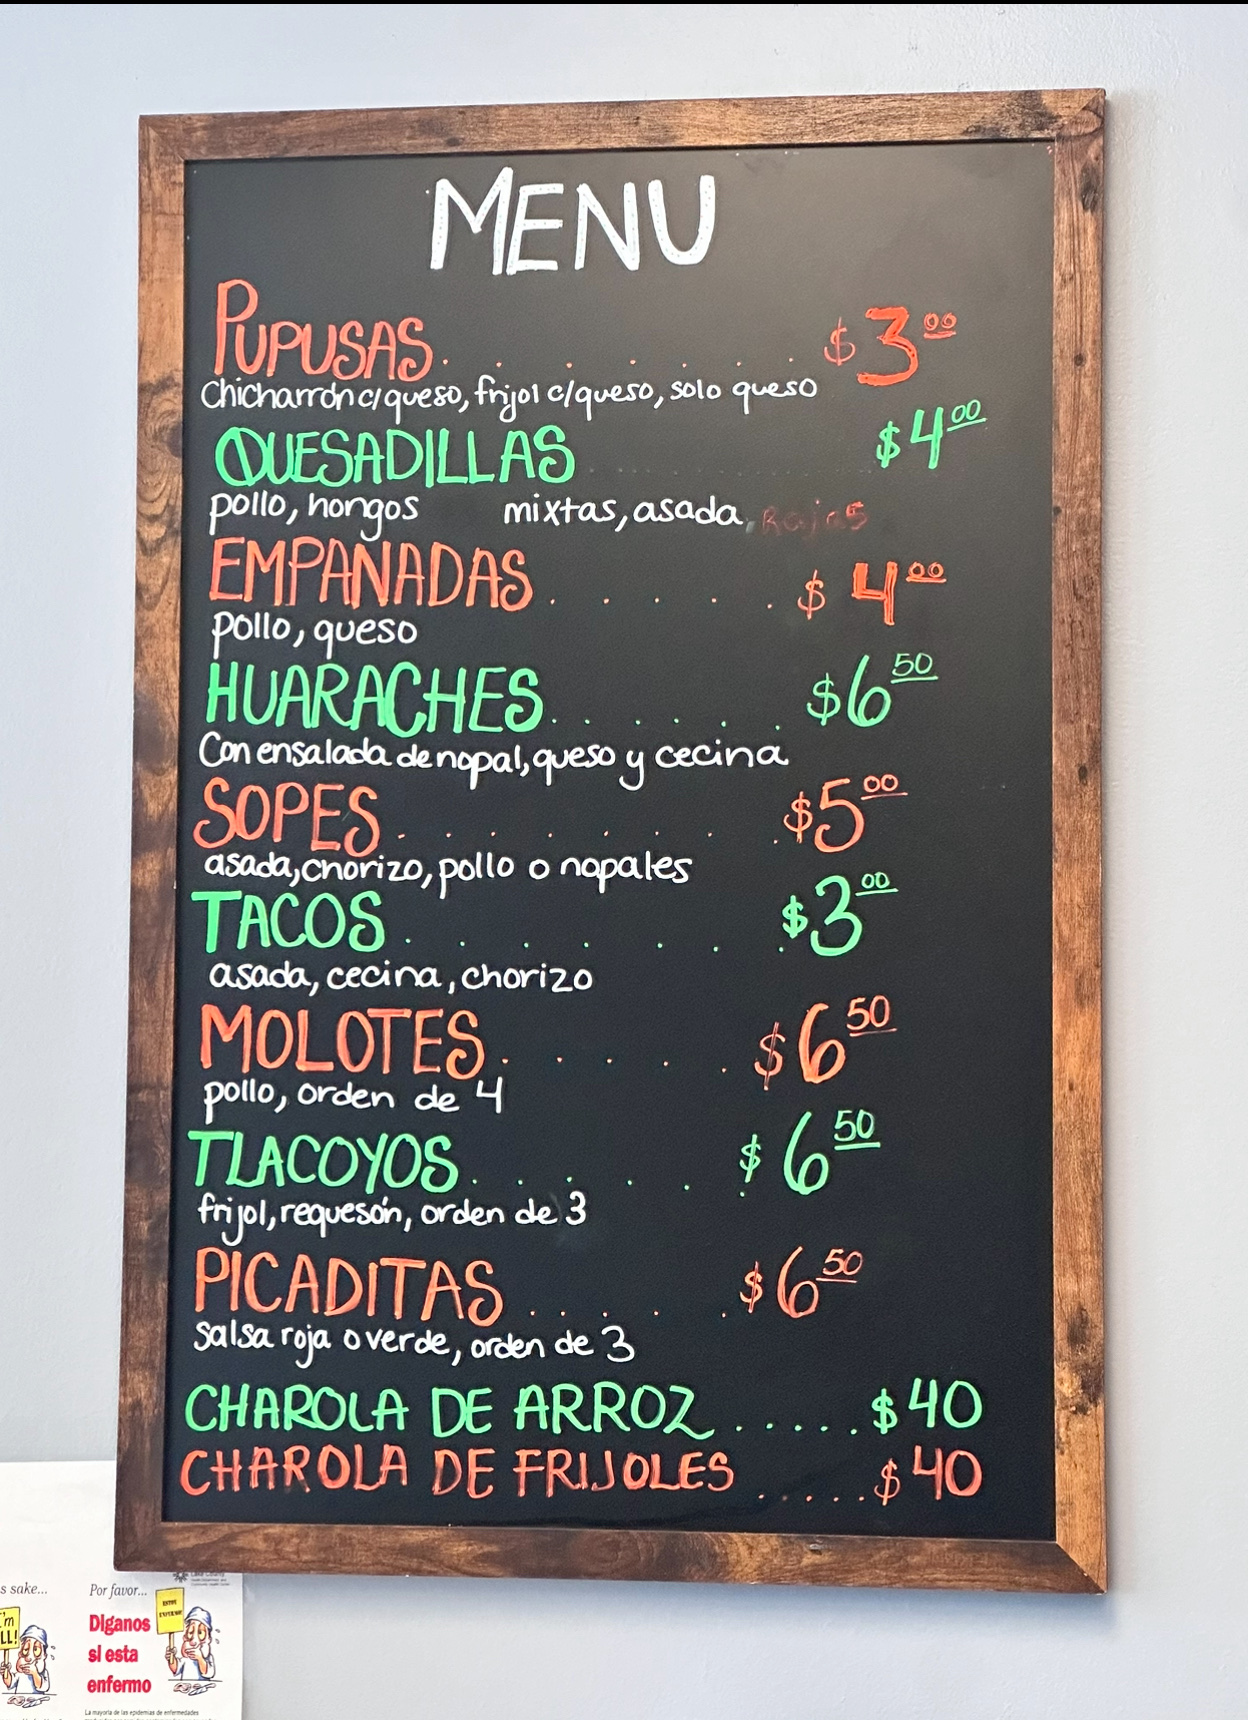 MENU
PUPUSAS. . . . . . . $3.00
Chicharrón c/queso, frijol c/queso, solo queso
QUESADILLAS $4.00
pollo, hongos mixtas, asada, Rajas
EMPANADAS. . . . . $4.00
pollo, queso
HUARACHES. . . . . . $6.50
Con ensalada de nopal, queso y cecina
SOPES. . . . . . . . $5.00
asada, chorizo, pollo o nopales
TACOS. . . . . . . $3.00
asada, cecina, chorizo
MOLOTES. . . . . $6.50
pollo, orden de 4
TLACOYOS. . . . . . $6.50
frijol, requesón, orden de 3
PICADITAS . . . . . $6.50
salsa roja o verde, orden de 3
CHAROLA DE ARROZ . . . . . $40
CHAROLA DE FRIJOLES . . . . . $40
s sake...
I'm
LL!
Por favor...
ESTOY
ENFERMO
Diganos
si esta
enfermo
La mayoría de las epidemias de enfermedades